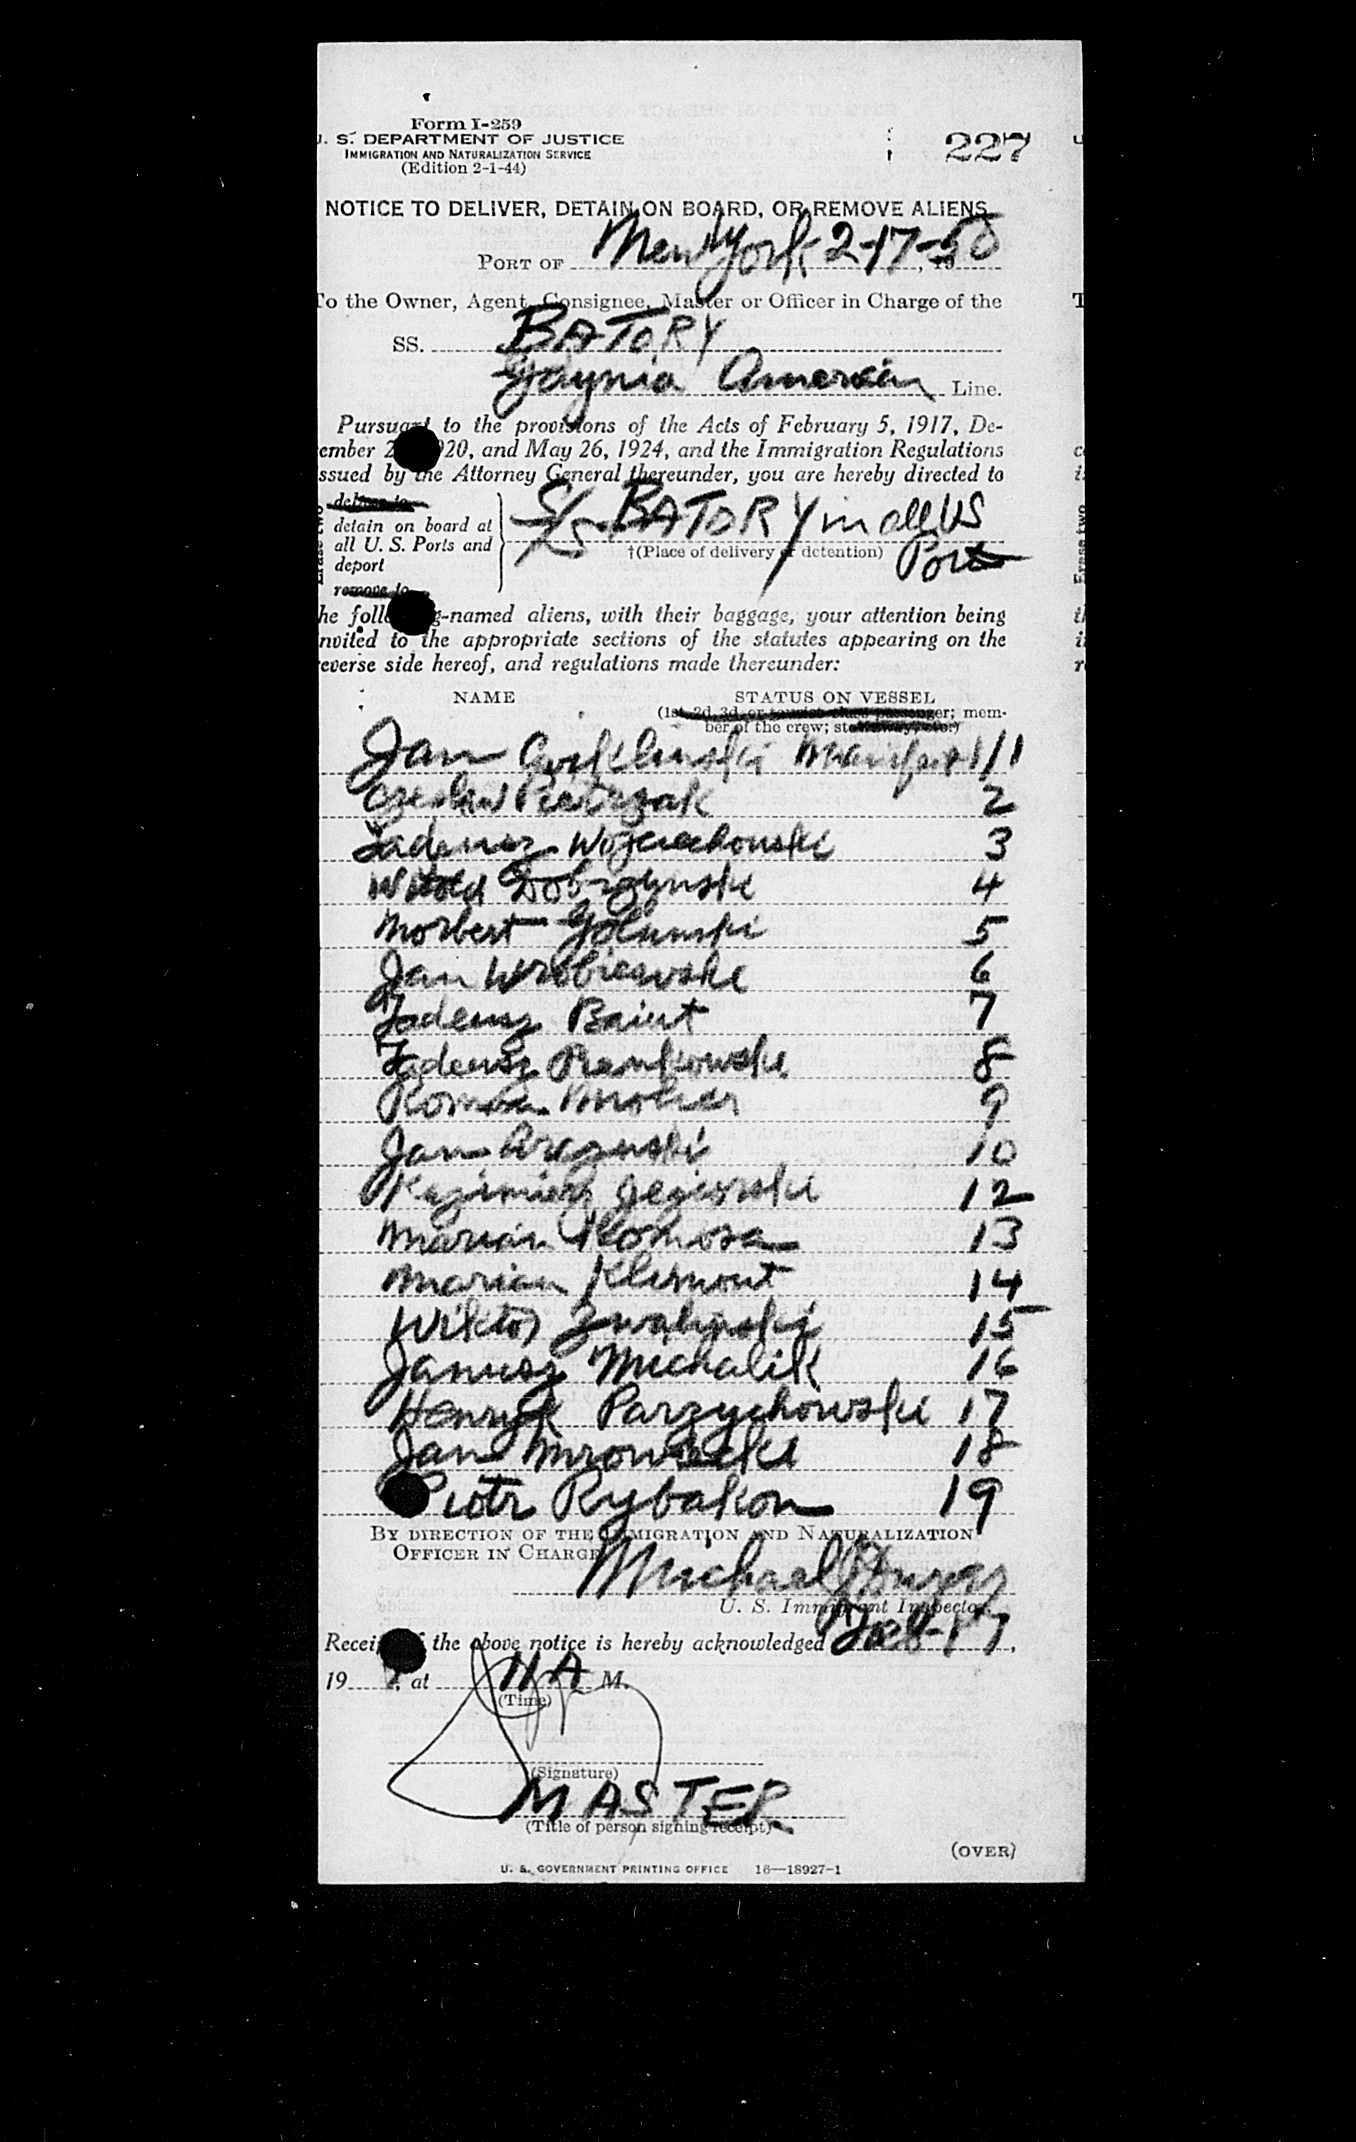 Form I-259
U. S. DEPARTMENT OF JUSTICE
IMMIGRATION AND NATURALIZATION SERVICE
(Edition 2-1-44)
227
NOTICE TO DELIVER, DETAIN ON BOARD, OR REMOVE ALIENS
PORT OF New York 2-17-, 1950
To the Owner, Agent, Consignee, Master or Officer in Charge of the
SS. BATORY
Gdynia American Line.
Pursuant to the provisions of the Acts of February 5, 1917, De-
cember 2 20, and May 26, 1924, and the Immigration Regulations
issued by the Attorney General thereunder, you are hereby directed to
deliver to
detain on board at
all U. S. Ports and
deport
remove to
S/S BATORY in all US
†(Place of delivery or detention)
Ports
the follo g-named aliens, with their baggage, your attention being
invited to the appropriate sections of the statutes appearing on the
reverse side hereof, and regulations made thereunder:
NAME STATUS ON VESSEL
(1st, 2d, 3d, or tourist class passenger; mem-
ber of the crew; stowaway, etc.)
Jan Manifest 1/1
Czeslaw Pietrzak 2
Tadeusz Wojciechowski 3
Witold Dobrzynski 4
Norbert Golunski 5
Jan 6
Tadeusz 7
Tadeusz 8
Roman 9
Jan 10
Kazimierz 12
Marian Komosa 13
Marian Klemont 14
Wiktor 15
Janusz Michalik 16
Henryk Parzychowski 17
Jan 18
Piotr Rybakon 19
BY DIRECTION OF THE IMMIGRATION AND NATURALIZATION
OFFICER IN CHARGE
Michael
U. S. Immigrant Inspector
Receipt of the above notice is hereby acknowledged Feb-17,
19 , at 11 A M.
(Time)
(Signature)
MASTER
(Title of person signing receipt)
(OVER)
U. S. GOVERNMENT PRINTING OFFICE 16—18927-1